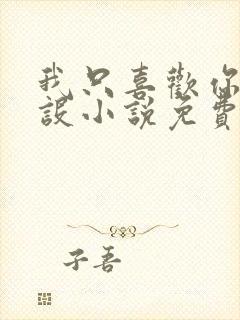 我只喜歡你
設小說免費
子吾